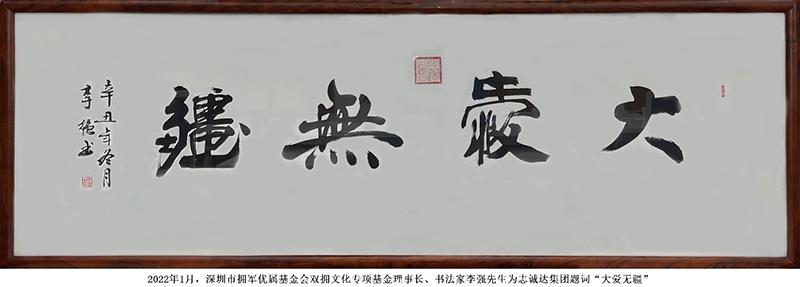 大愛無疆
辛丑年冬月
李强书
2022年1月，深圳市拥军优属基金会双拥文化专项基金理事长、书法家李强先生为志诚达集团题词“大爱无疆”